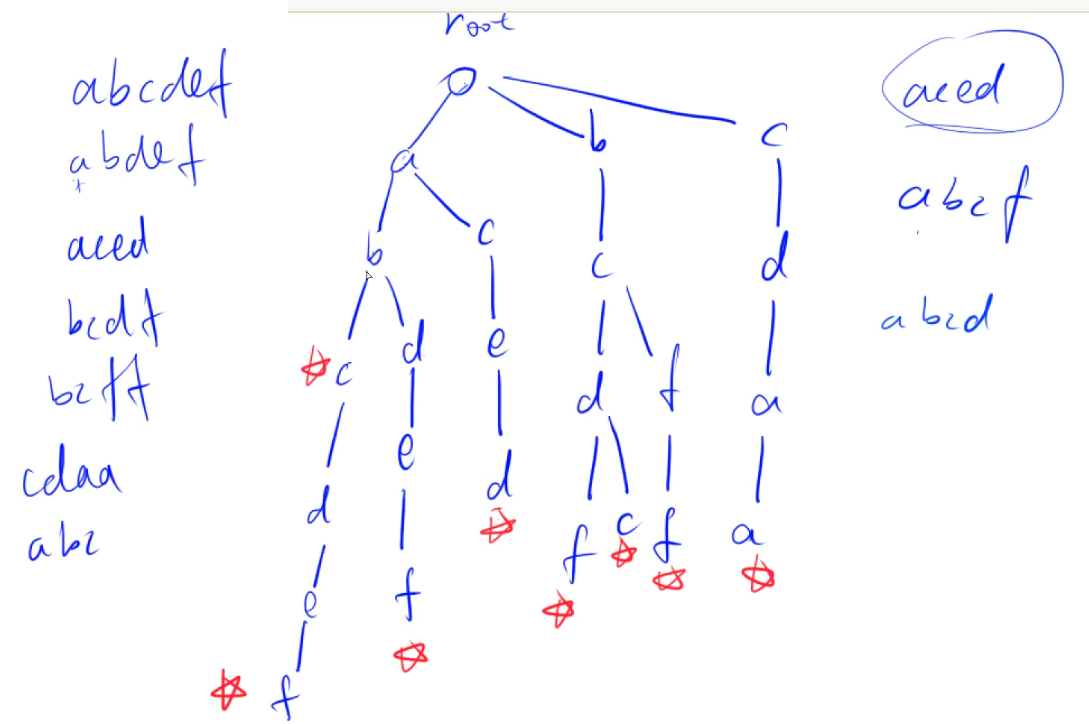 root
abcdef
abdef
aced
bcdf
bcff
cdaa
abc
a b c
b c c d
c d e d a
d e d f a
e d f c f a
f f
aced
abcf
abcd